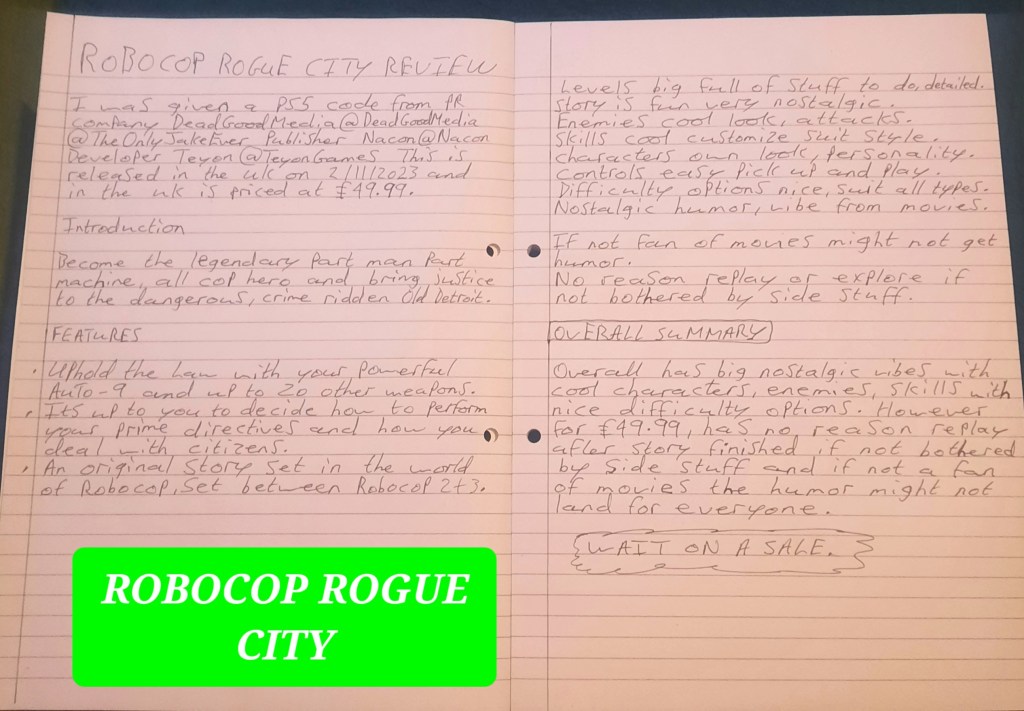 ROBOCOP ROGUE CITY REVIEW
I was given a PS5 code from PR
company DeadGoodMedia@DeadGoodMedia
@TheOnlyJakeEver Publisher Nacon@Nacon
Developer Teyon @TeyonGames This is
released in the uk on 2/11/2023 and
in the uk is priced at £49.99.
Introduction
Become the legendary Part man Part
machine, all cop hero and bring justice
to the dangerous, crime ridden Old Detroit.
FEATURES
· Uphold the Law with your Powerful
AUTO-9 and up to 20 other weapons.
· Its up to you to decide how to perform
your prime directives and how you
deal with citizens.
· An original story set in the world
of Robocop, set between Robocop 2+3.
ROBOCOP ROGUE
CITY
Levels big full of stuff to do, detailed.
Story is fun very nostalgic.
Enemies cool look, attacks.
Skills cool customize suit style.
Characters own look, personality.
Controls easy pick up and play.
Difficulty options nice, suit all types.
Nostalgic humor, vibe from movies.
If not fan of movies might not get
humor.
No reason replay or explore if
not bothered by side stuff.
OVERALL SUMMARY
Overall has big nostalgic vibes with
cool characters, enemies, skills with
nice difficulty options. However
for £49.99, has no reason replay
after story finished if not bothered
by side stuff and if not a fan
of movies the humor might not
land for everyone.
WAIT ON A SALE.